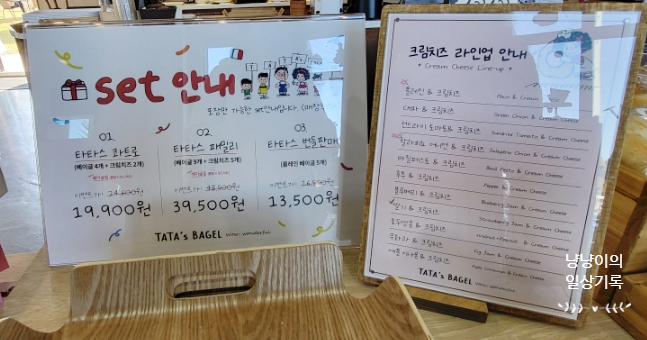 set 안내
포장만 가능한 set 안내입니다.
01
타타스 콰트로
(베이글 4개 + 크림치즈 2개)
19,900원
02
타타스 패밀리
39,500원
03
타타스 번들판매
(플레인 베이글 5개)
13,500원
TATA's BAGEL
크림치즈 라인업 안내
Cream Cheese Line-up
플레인 & 크림치즈
Plain & Cream
대파 & 크림치즈
Green Onion & Cream Cheese
썬드라이 토마토 & 크림치즈
Sundried Tomato & Cream Cheese
할라피뇨 어니언 & 크림치즈
Jalapeno Onion & Cream Cheese
바질페스토 & 크림치즈
Basil Pesto & Cream Cheese
후추 & 크림치즈
Pepper & Cream Cheese
블루베리 & 크림치즈
Blueberry Jam & Cream Cheese
딸기 & 크림치즈
Strawberry Jam & Cream Cheese
호두땅콩 & 크림치즈
Walnut+Peanut & Cream Cheese
무화과 & 크림치즈
Fig Jam & Cream Cheese
애플 시나몬 & 크림치즈
Apple Cinnamon & Cream Cheese
TATA's BAGEL
냥냥이의
일상기록